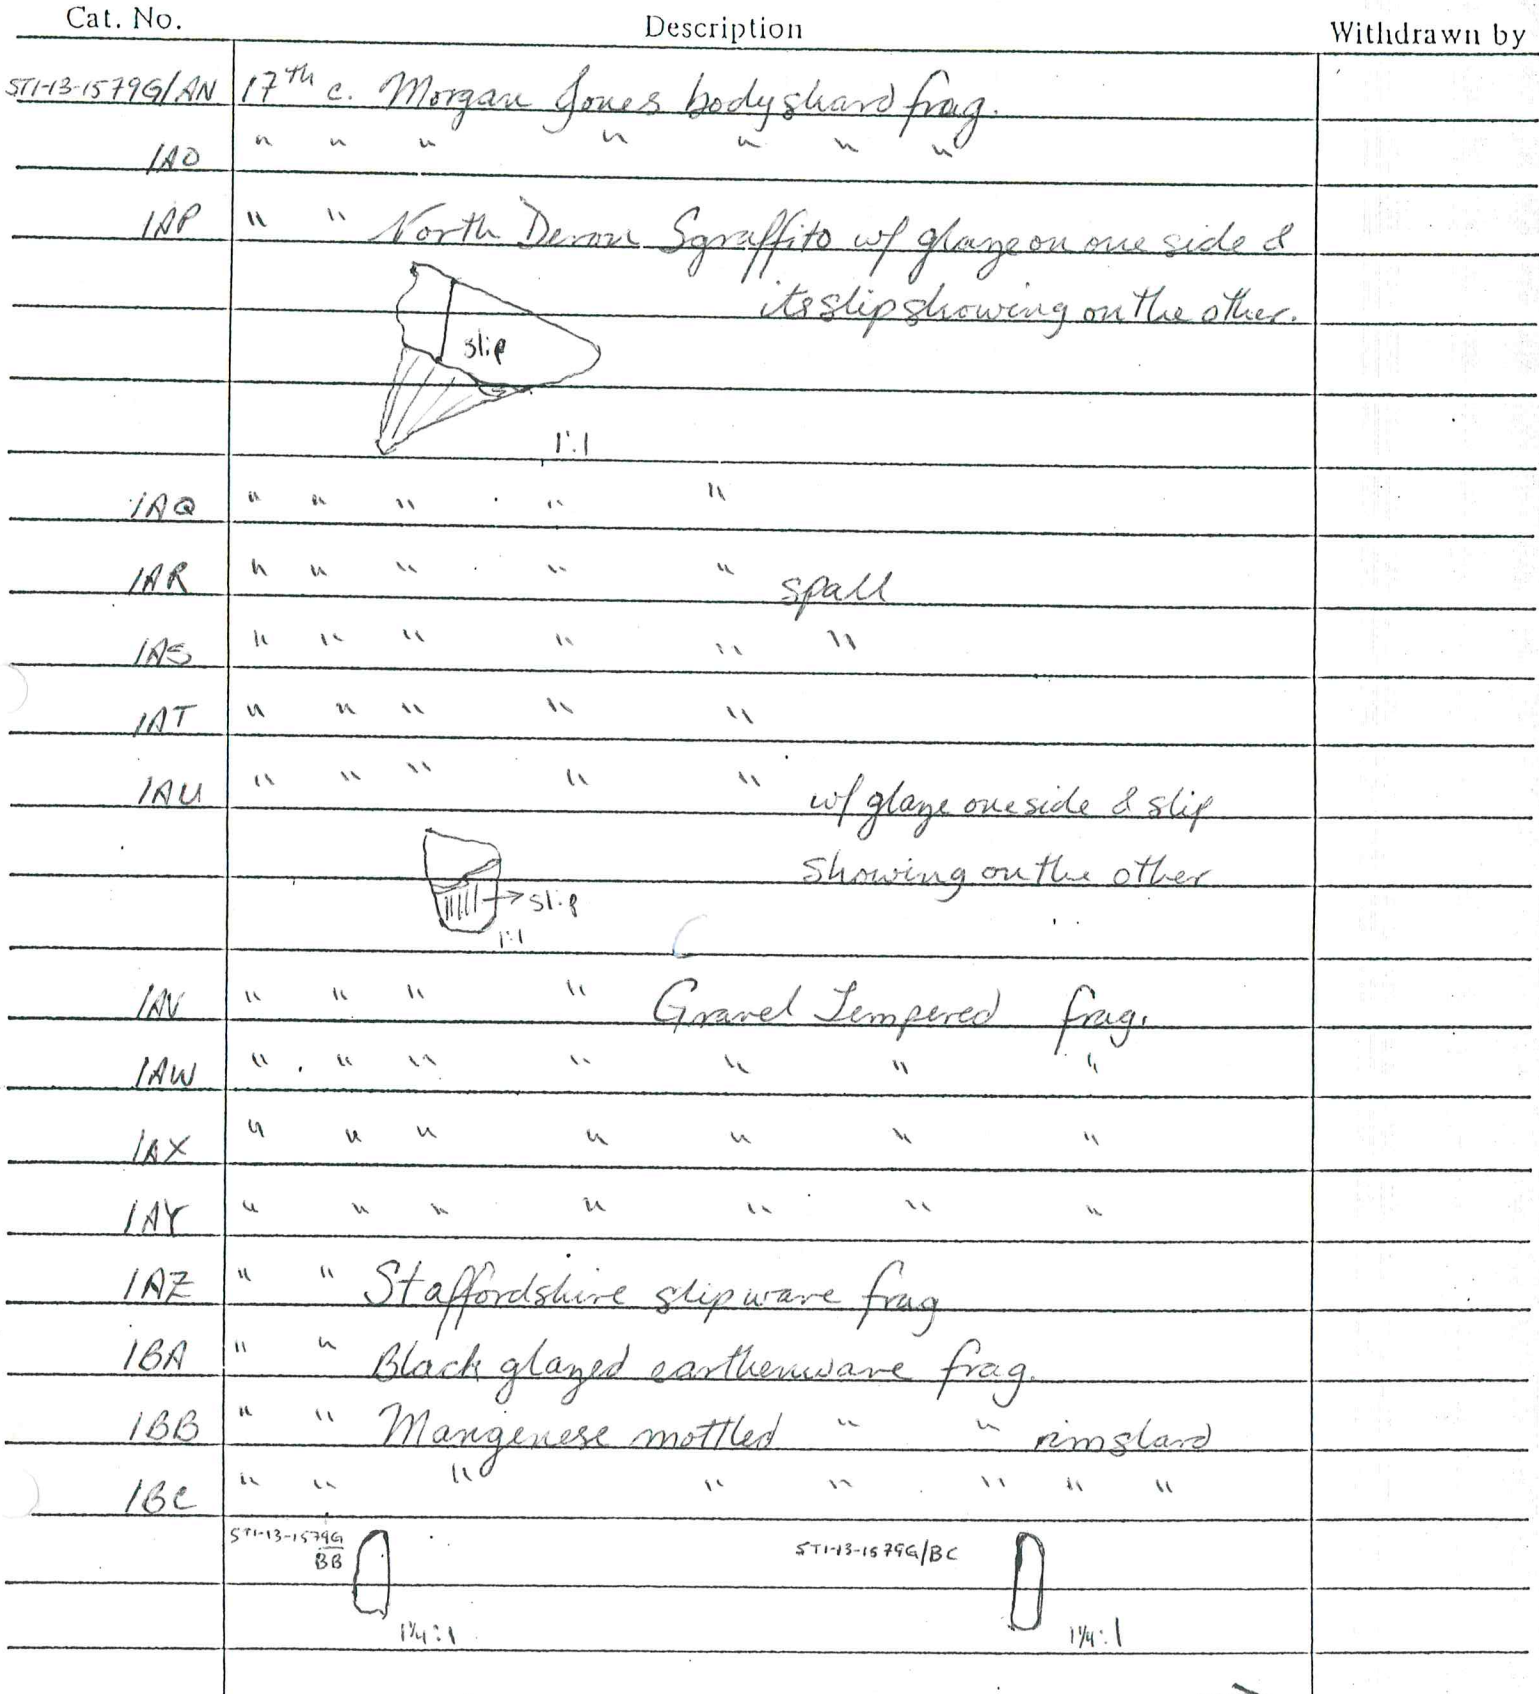 Cat. No. Description Withdrawn by
ST1-13-1579G/AN 17th c. Morgan Jones bodyshard frag.
/AO " " " " " " "
/AP " " North Devon Sgraffito w/ glaze on one side &
its slip showing on the other.
slip
1:1
/AQ " " " " "
/AR " " " " " spall
/AS " " " " " "
/AT " " " " "
/AU " " " " " w/ glaze one side & slip
showing on the other
→ slip
1:1
/AV " " " " Gravel Tempered frag.
/AW " " " " " " "
/AX " " " " " " "
/AY " " " " " " "
/AZ " " Staffordshire slipware frag
/BA " " Black glazed earthenware frag.
/BB " " Mangenese mottled " " rimshard
/BC " " " " " " " "
ST1-13-1579G
BB
ST1-13-1579G/BC
1¼:1 1¼:1